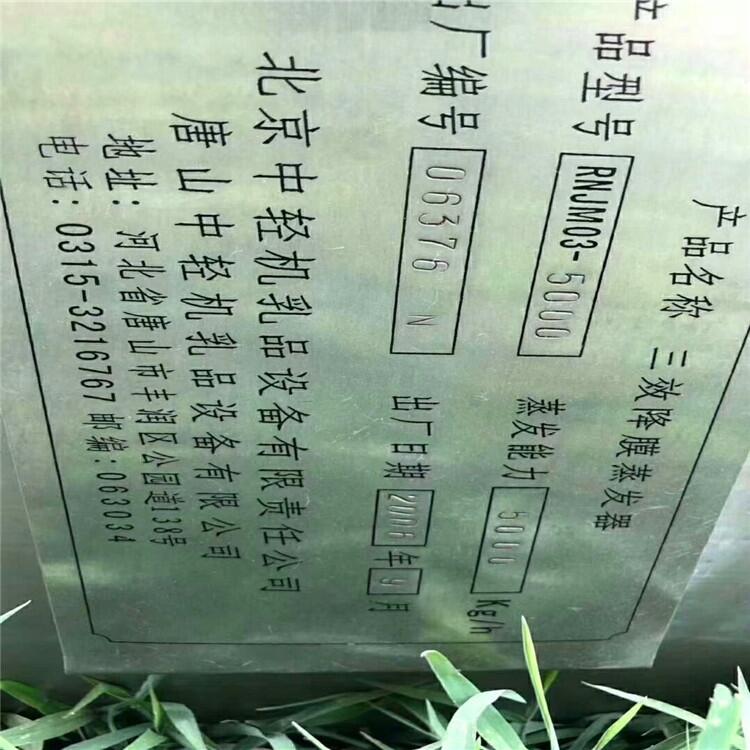 产品名称 三效降膜蒸发器
产品型号 RNJM03-5000 蒸发能力 5000 Kg/h
出厂编号 06376 N 出厂日期 2006 年 9 月
北京中轻机乳品设备有限责任公司
唐山中轻机乳品设备有限公司
地址: 河北省唐山市丰润区公园道138号
电话: 0315-3216767 邮编: 063034